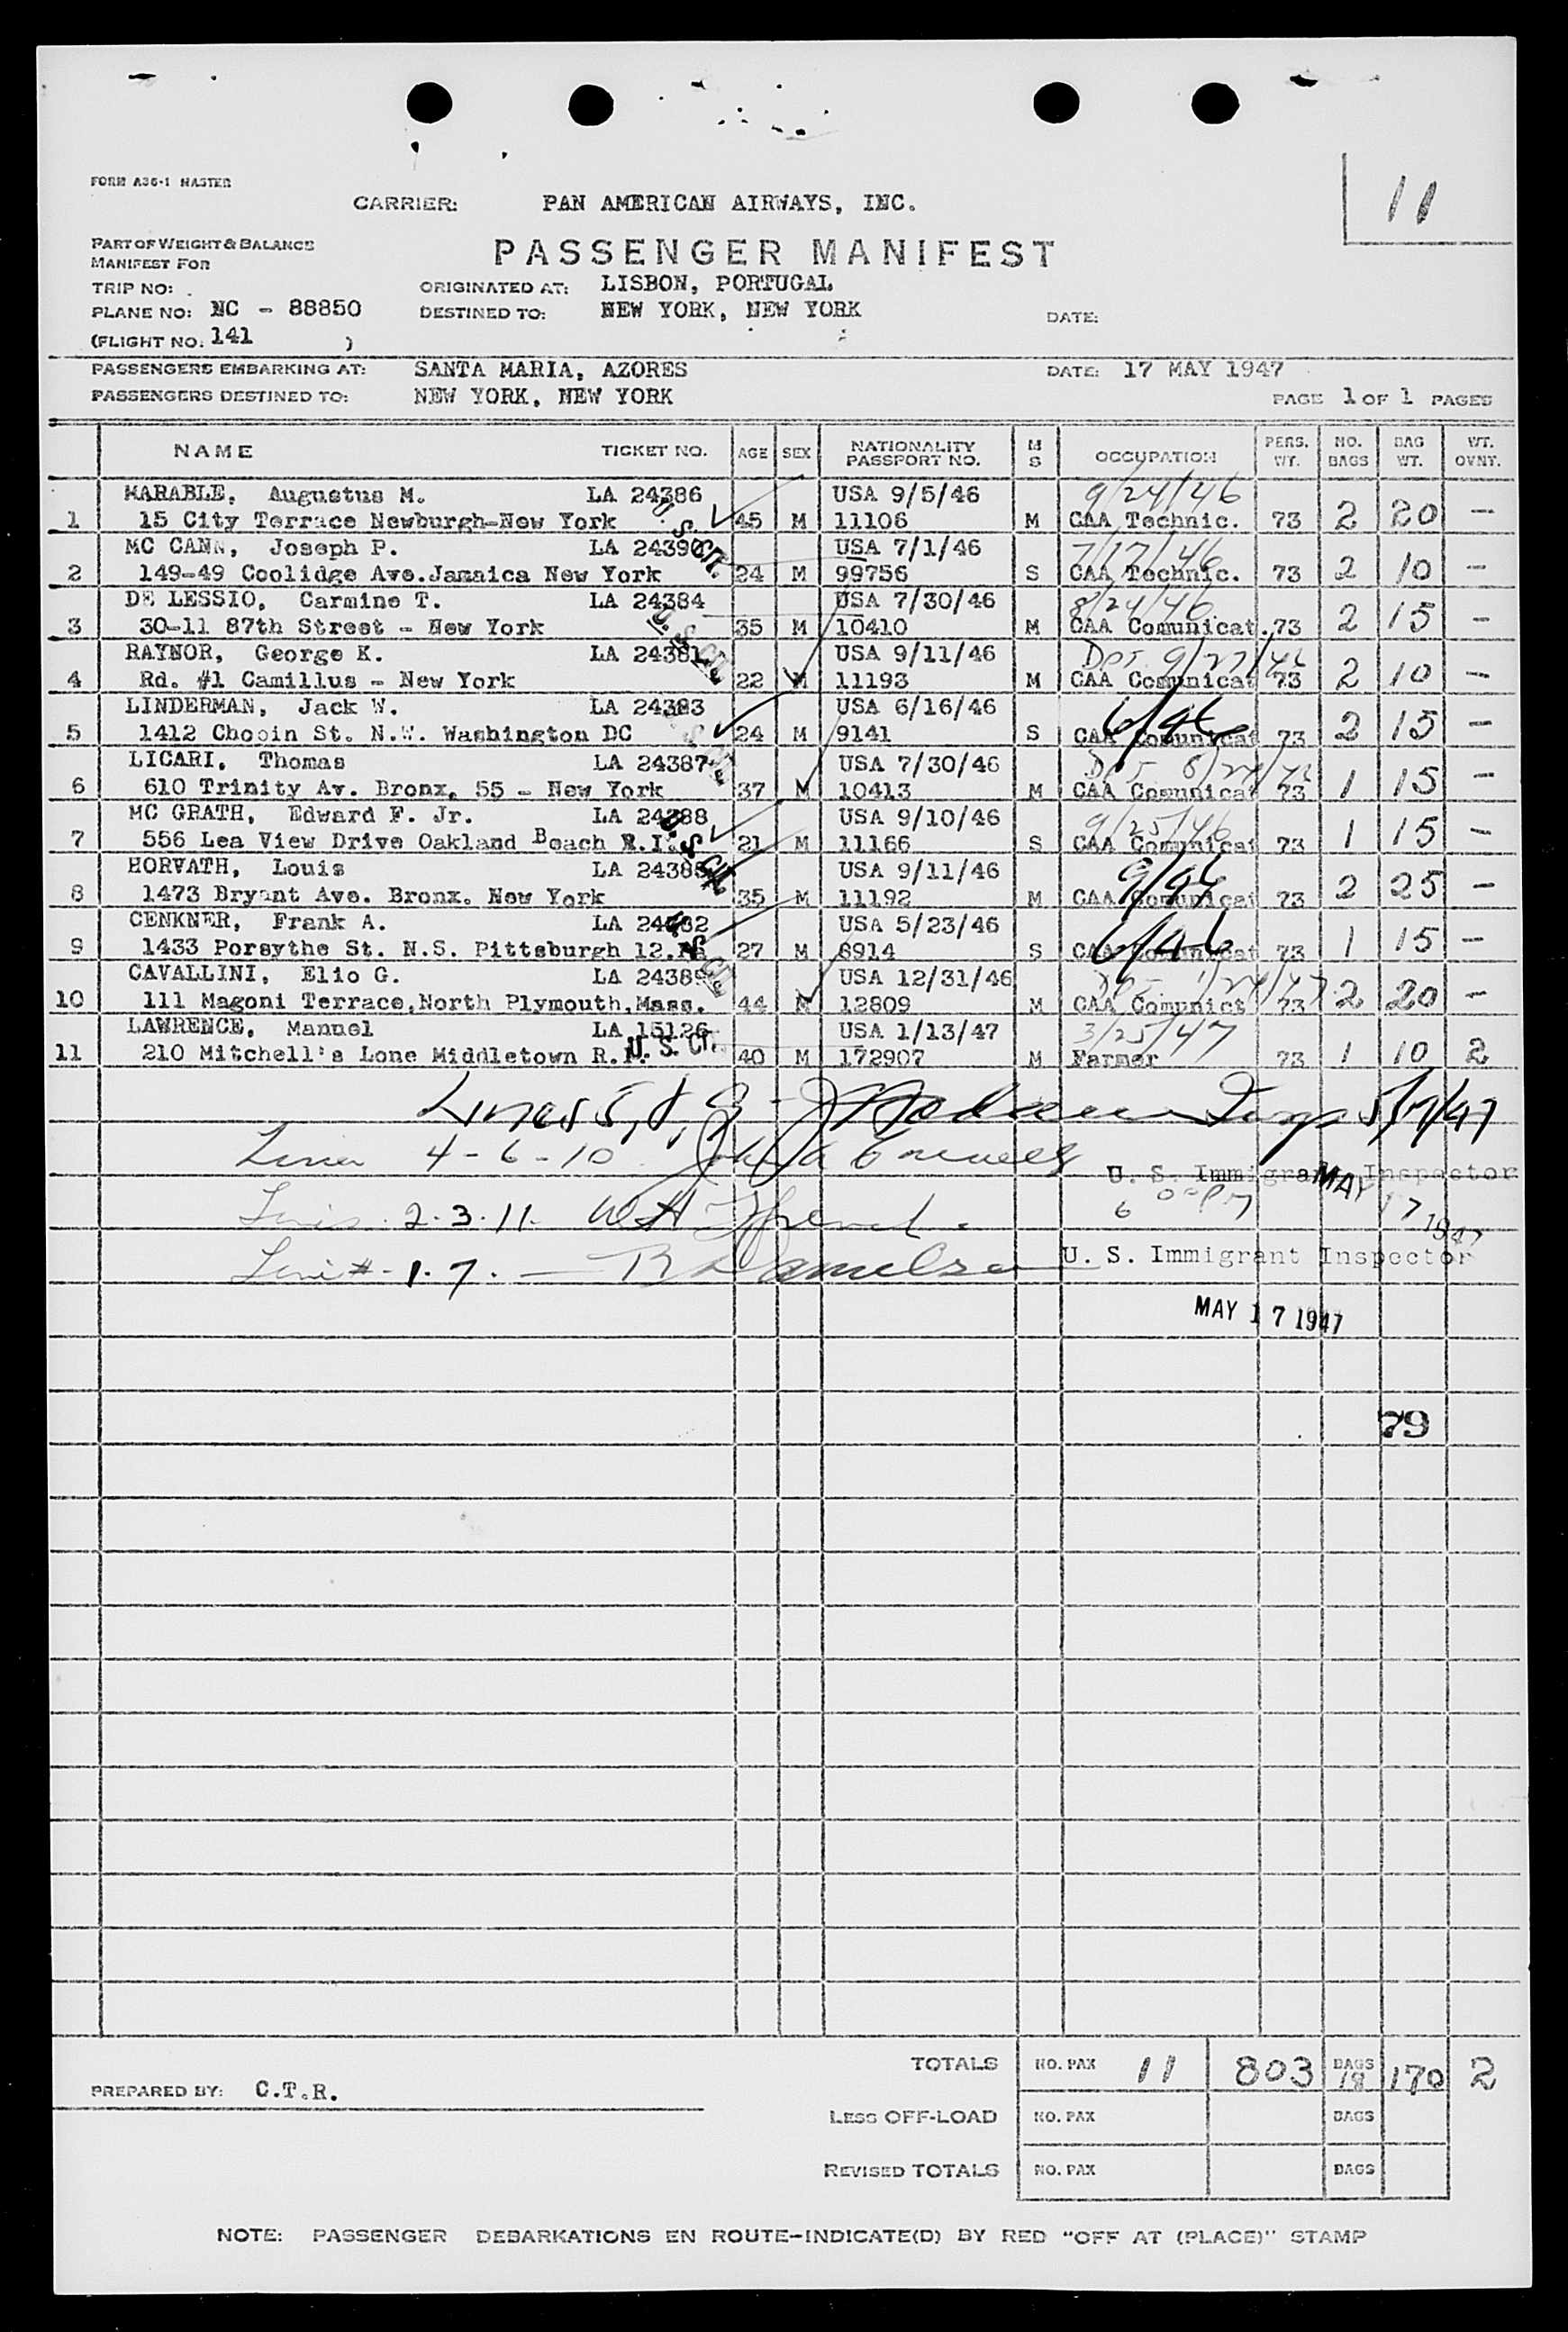 FORM A36-1 MASTER
11
CARRIER: PAN AMERICAN AIRWAYS, INC.
PART OF WEIGHT & BALANCE
PASSENGER MANIFEST
MANIFEST FOR
TRIP NO: ORIGINATED AT: LISBON, PORTUGAL
PLANE NO: NC - 88850 DESTINED TO: NEW YORK, NEW YORK DATE:
(FLIGHT NO: 141 )
PASSENGERS EMBARKING AT: SANTA MARIA, AZORES DATE: 17 MAY 1947
PASSENGERS DESTINED TO: NEW YORK, NEW YORK PAGE 1 OF 1 PAGES
NAME TICKET NO. AGE SEX NATIONALITY PASSPORT NO. M S OCCUPATION PERS. WT. NO. BAGS BAG WT. WT. OVNT.
MARABLE, Augustus M. LA 24386 USA 9/5/46 9/24/46
1 15 City Terrace Newburgh-New York U. S. CIT. 45 M 11106 M CAA Technic. 73 2 20 -
MC CANN, Joseph P. LA 24390 USA 7/1/46 7/17/46
2 149-49 Coolidge Ave.Jamaica New York 24 M 99756 S CAA Technic. 73 2 10 -
DE LESSIO, Carmine T. LA 24384 USA 7/30/46 8/24/46
3 30-11 87th Street - New York U. S. CIT. 35 M 10410 M CAA Comunicat. 73 2 15 -
RAYNOR, George K. LA 24381 USA 9/11/46 Dpt. 9/27/46
4 Rd. #1 Camillus - New York 22 M 11193 M CAA Comunicat 73 2 10 -
LINDERMAN, Jack W. LA 24383 USA 6/16/46 6/46
5 1412 Chopin St. N.W. Washington DC U. S. CIT. 24 M 9141 S CAA Comunicat 73 2 15 -
LICARI, Thomas LA 24387 USA 7/30/46 Dpt.
6 610 Trinity Av. Bronx, 55 - New York 37 M 10413 M CAA Comunicat 73 1 15 -
MC GRATH, Edward F. Jr. LA 24388 USA 9/10/46 9/25/46
7 556 Lea View Drive Oakland Beach R.I. U. S. CIT. 21 M 11166 S CAA Comunicat 73 1 15 -
HORVATH, Louis LA 24385 USA 9/11/46 9/46
8 1473 Bryant Ave. Bronx. New York 35 M 11192 M CAA Comunicat 73 2 25 -
CENKNER, Frank A. LA 24382 USA 5/23/46 6/46
9 1433 Forsythe St. N.S. Pittsburgh 12.Pa U. S. CIT. 27 M 8914 S CAA Comunicat 73 1 15 -
CAVALLINI, Elio G. LA 24389 USA 12/31/46
10 111 Magoni Terrace,North Plymouth,Mass. 44 M 12809 M CAA Comunict 73 2 20 -
LAWRENCE, Manuel LA 15126 USA 1/13/47 3/25/47
11 210 Mitchell's Lone Middletown R.I. U. S. CIT. 40 M 172907 M Farmer 73 1 10 2
Lines 5, 8, 9 - Insp 5/17/47
Lines 4-6-10
U. S. Immigrant Inspector
MAY 17 1947
Lines 2.3.11. W H
6 00 PM
Line # 1.7. - R Danielson
U. S. Immigrant Inspector
MAY 17 1947
79
TOTALS NO. PAX 11 803 BAGS 18 170 2
PREPARED BY: C.T.R.
LESS OFF-LOAD NO. PAX BAGS
REVISED TOTALS NO. PAX BAGS
NOTE: PASSENGER DEBARKATIONS EN ROUTE-INDICATE(D) BY RED "OFF AT (PLACE)" STAMP